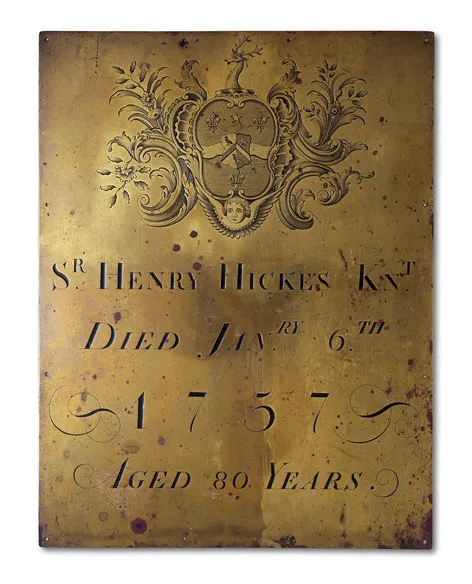 SR HENRY HICKES KNT
DIED JAN.RY 6.TH
1757
AGED 80 YEARS.